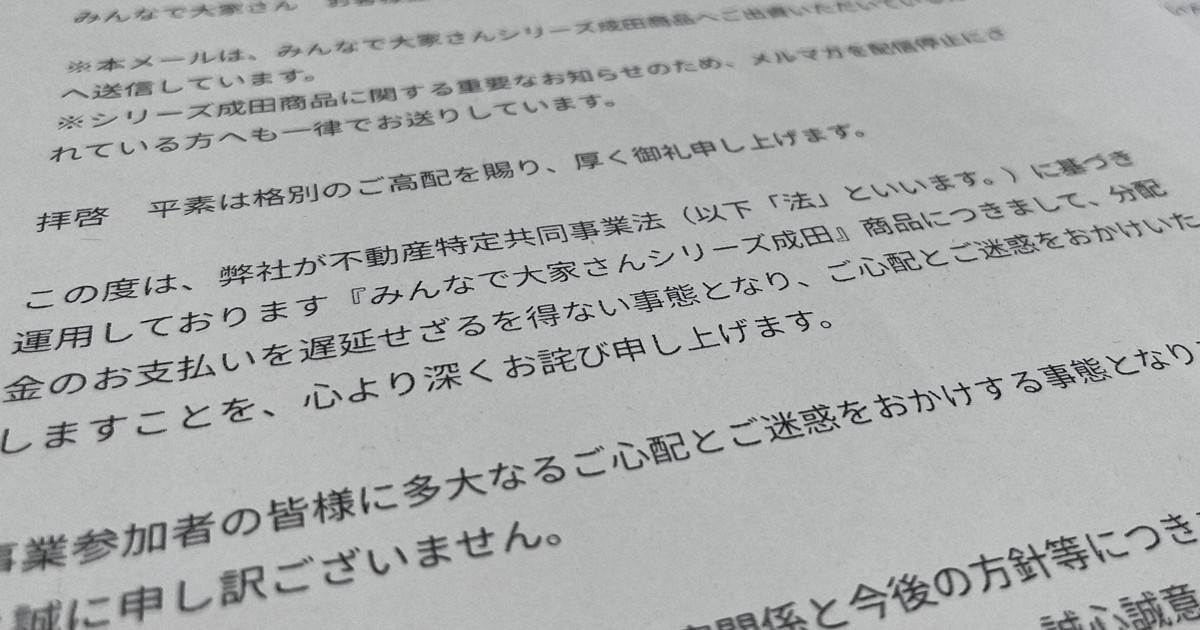 みんなで大家さん
※本メールは、みんなで大家さんシリーズ成田商品へご出資いただいている
へ送信しています。
※シリーズ成田商品に関する重要なお知らせのため、メルマガを配信停止にさ
れている方へも一律でお送りしています。
拝啓　平素は格別のご高配を賜り、厚く御礼申し上げます。
この度は、弊社が不動産特定共同事業法（以下「法」といいます。）に基づき
運用しております『みんなで大家さんシリーズ成田』商品につきまして、分配
金のお支払いを遅延せざるを得ない事態となり、ご心配とご迷惑をおかけいた
しますことを、心より深くお詫び申し上げます。
事業参加者の皆様に多大なるご心配とご迷惑をおかけする事態となり
誠に申し訳ございません。
関係と今後の方針等につき
誠心誠意